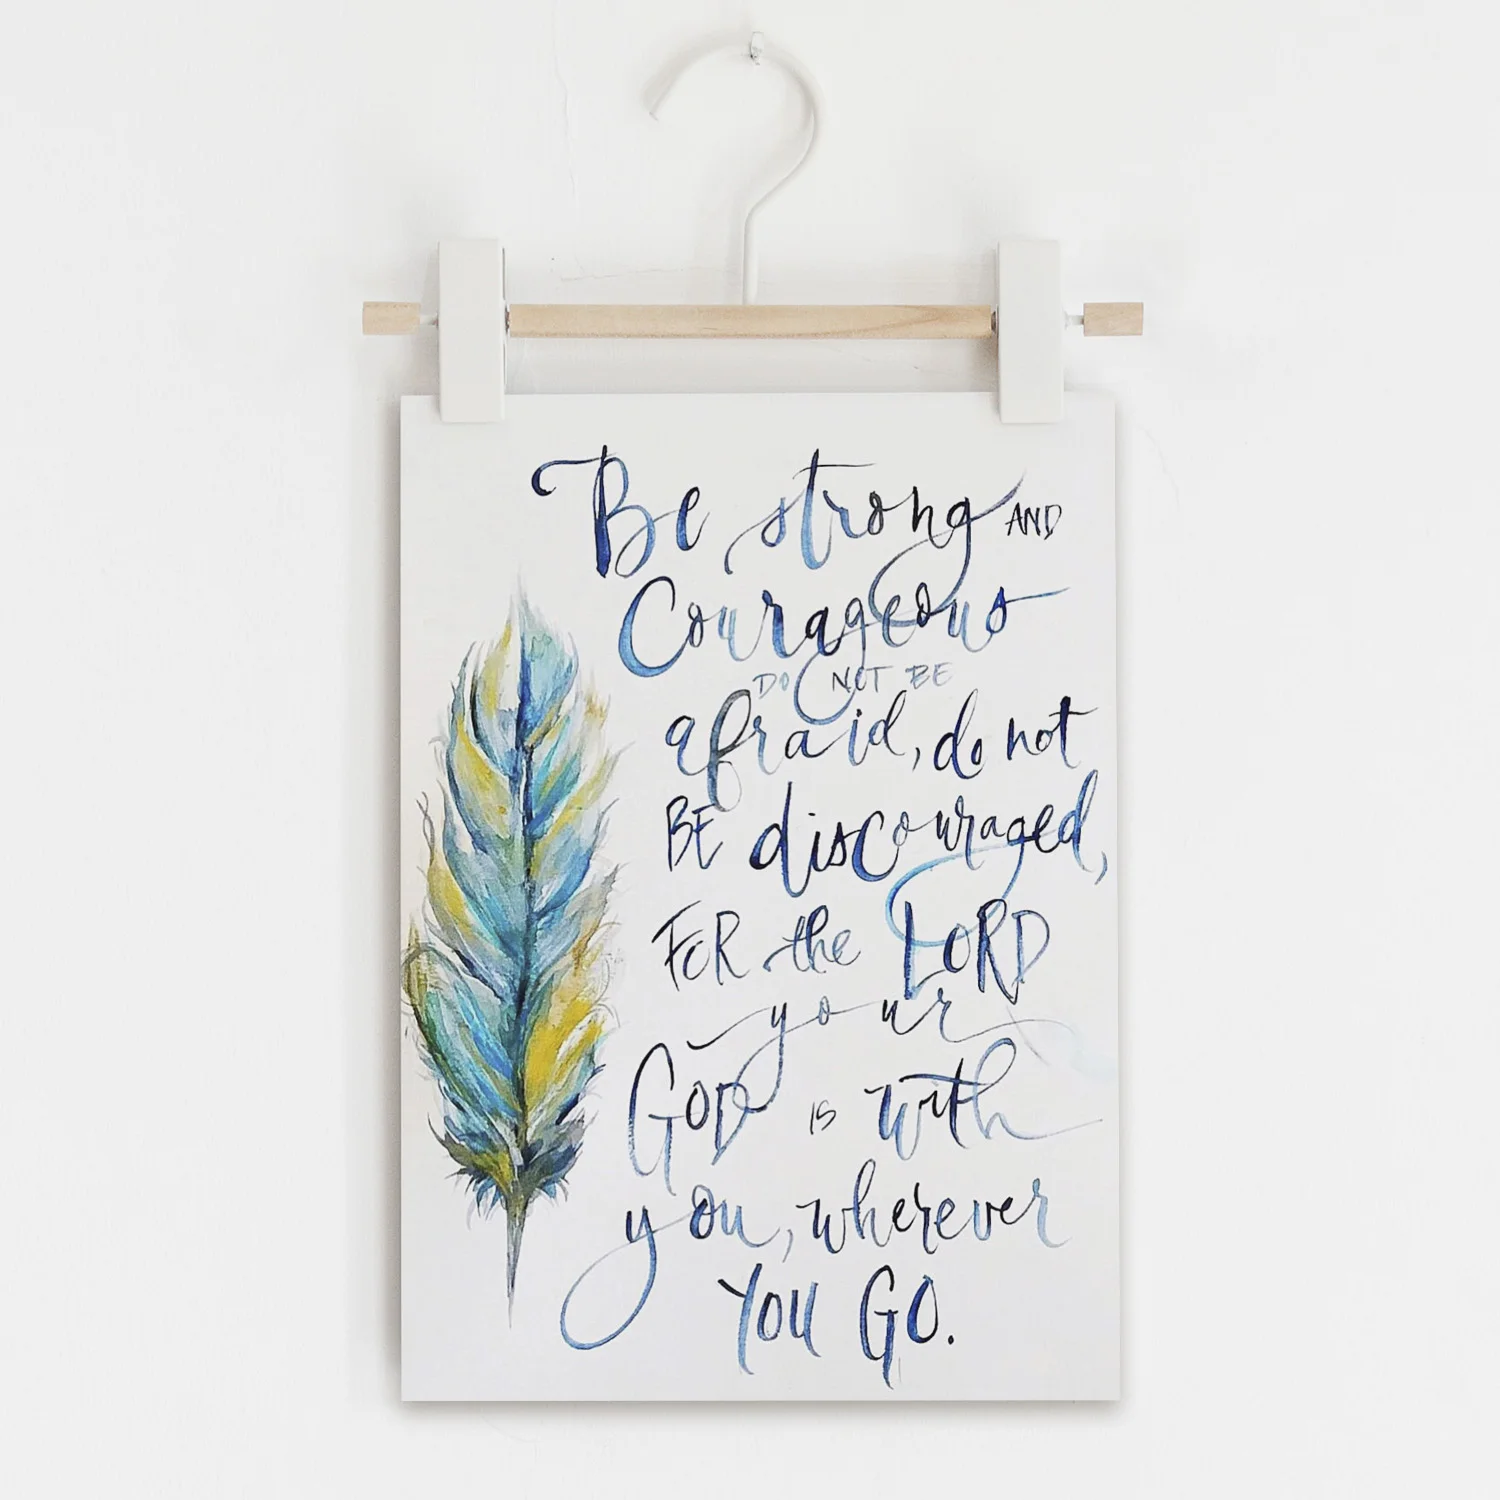 Be strong AND
Courageous
DO NOT BE
afraid, do not
BE discouraged,
FOR the LORD
your
GOD is with
you, wherever
YOU GO.